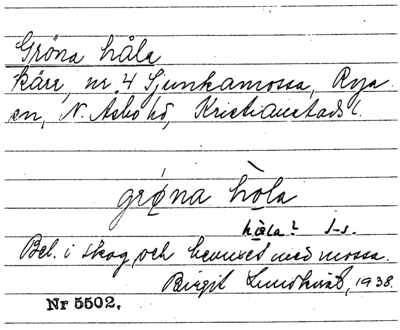 Gröna håla
kärr, nr. 4 Sjunkamossa, Rya
sn, N. Åsbo hd, Kristianstads l.
grǿna hòla
hòla? I-s.
Bel. i skog och bevuxet med mossa.
Birgit Lundkvist, 1938.
Nr 5502.